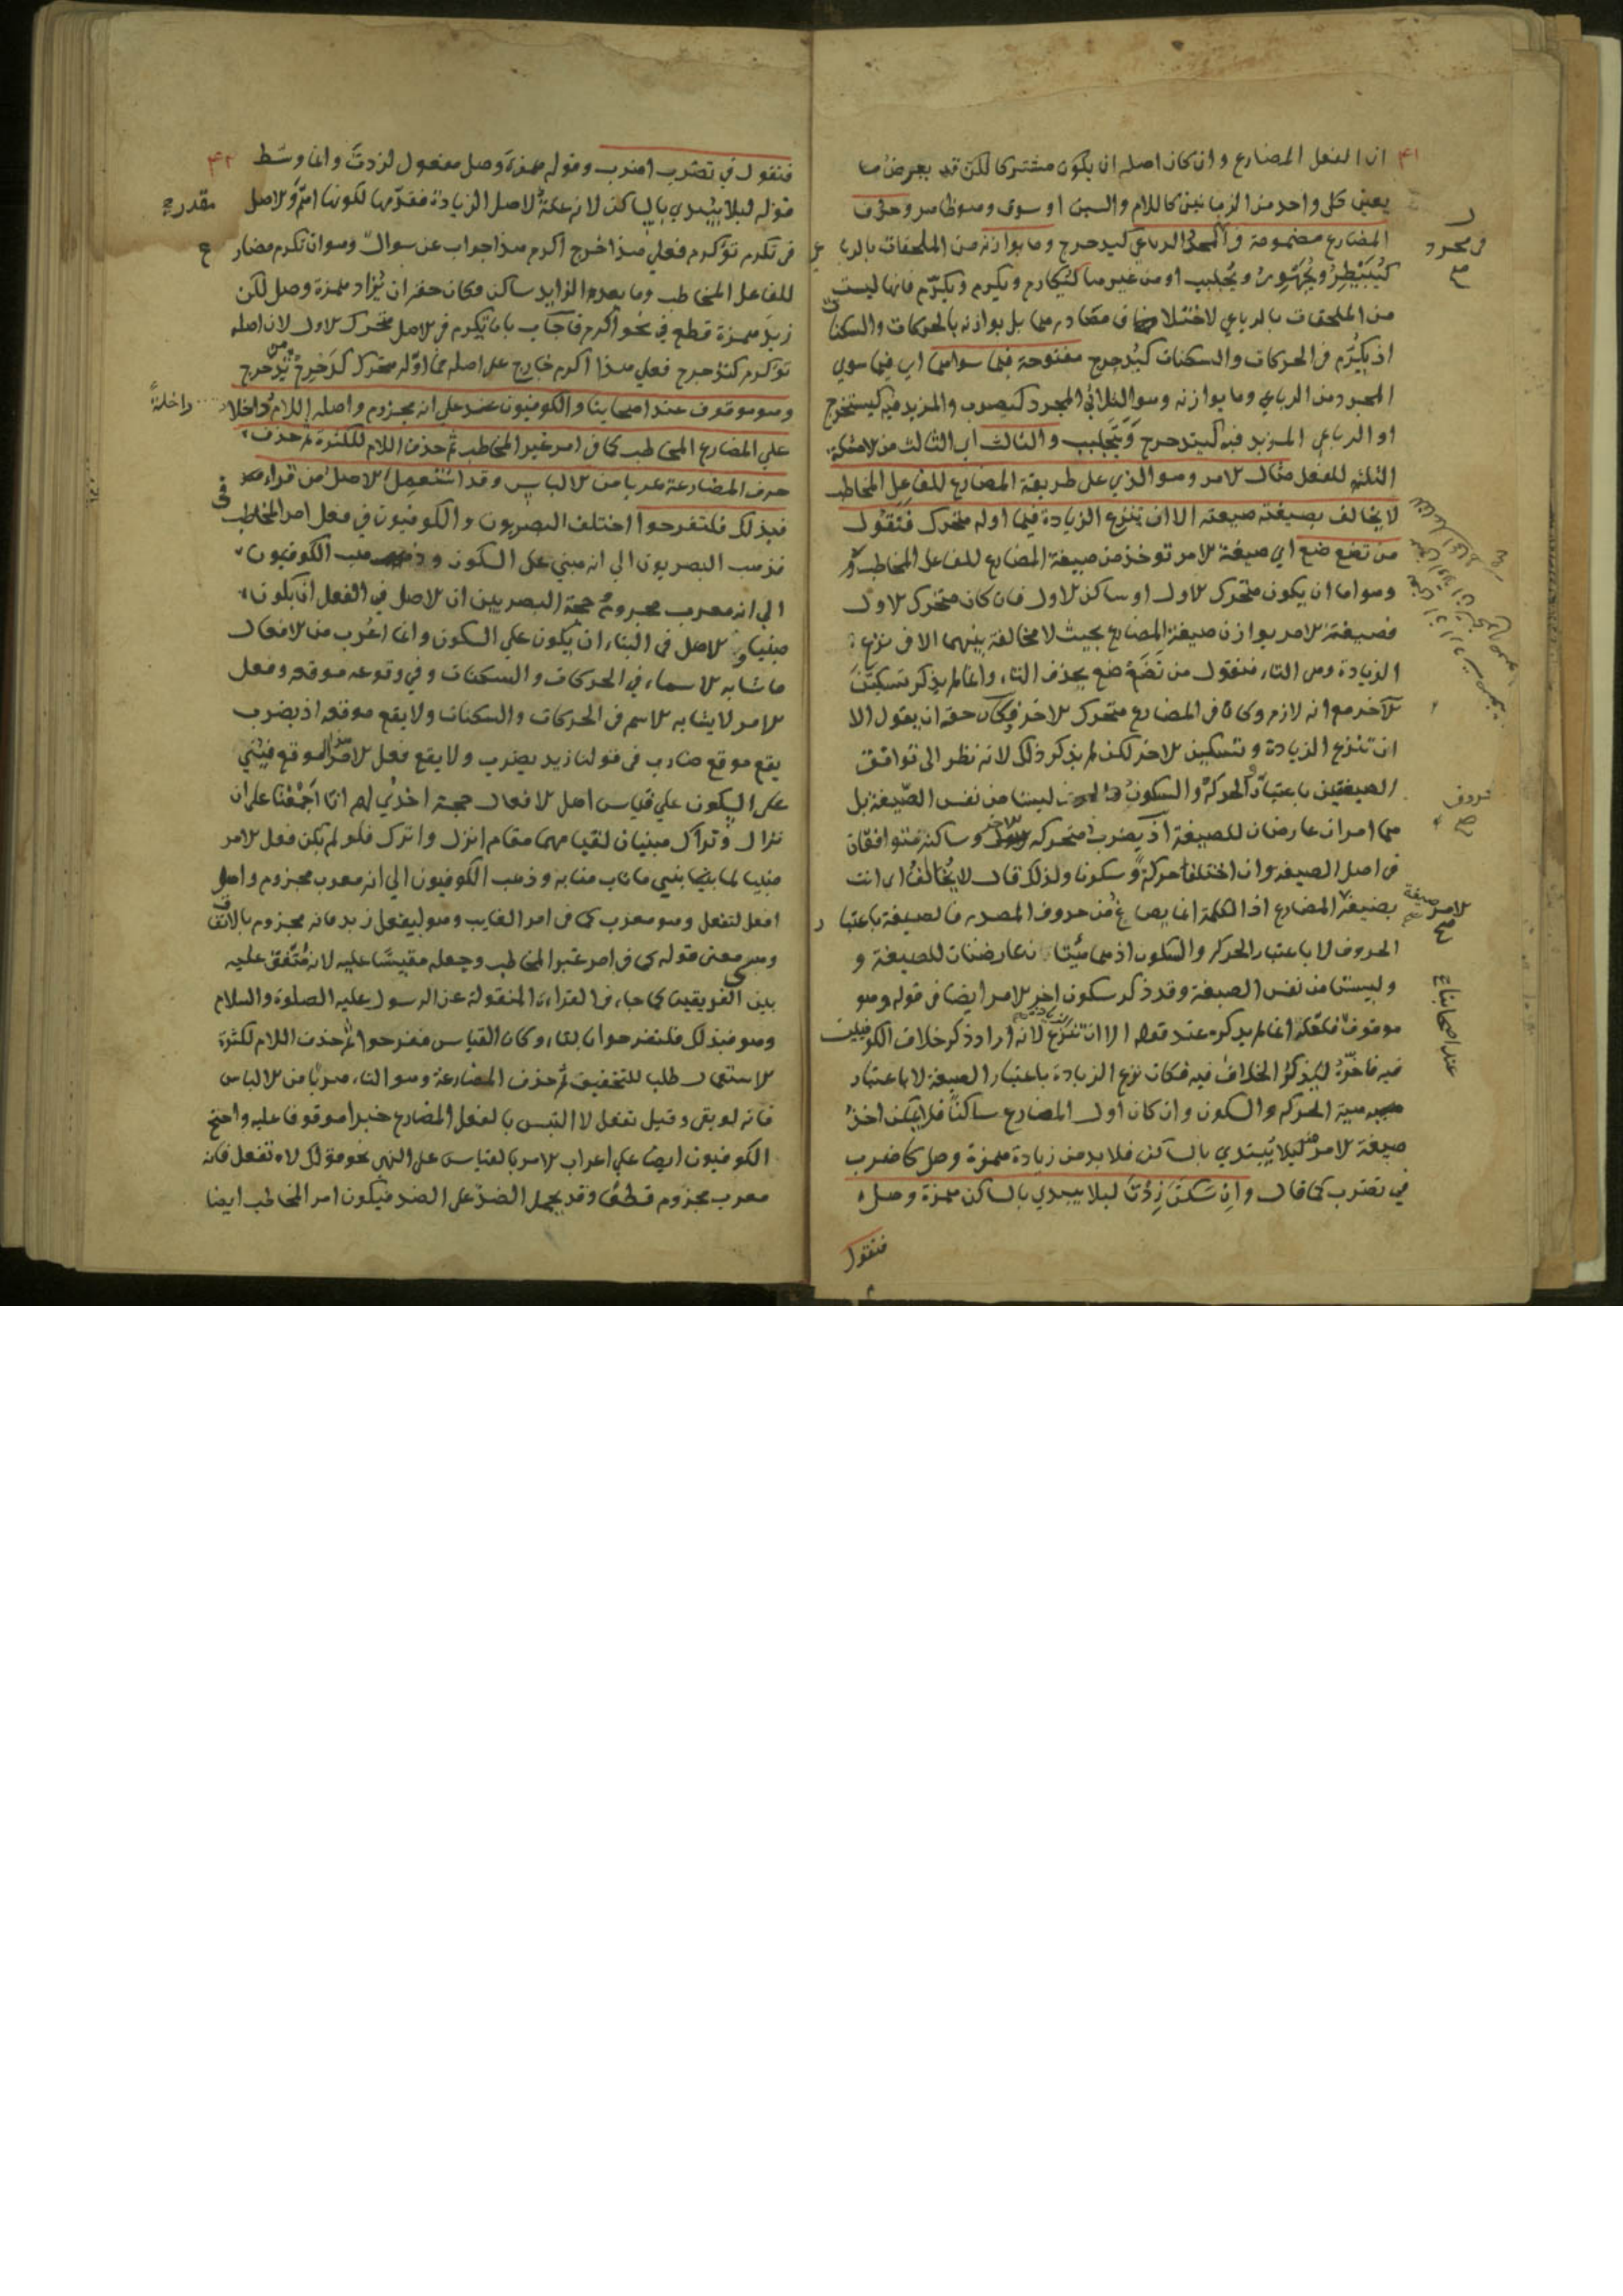 ٤١
ان الفعل المضارع وان كان اصله ان يكون مشتركا لكن قد يعرض ما
يعين كل واحد من الزمانين كاللام والسين او سوف وهو ظاهر وحرف
المضارع مضمومة في المجرد الرباعي كيدحرج وما يوازنه من الملحقات بالربا
كيبيطر ويجهور ويجلبب او من غيرها كيكارم ويكرم ويكرّم فانها ليست
من الملحقات بالرباعي لاختلاف مصادرها بل يوازنه بالحركات والسكنات
اذ يكرّم في الحركات والسكنات كيدحرج مفتوحة فيما سواهما اي فيما سوي
المجرد من الرباعي وما يوازنه وهو الثلاثي المجرد كينصر والمزيد فيه كيستخرج
او الرباعي المزيد فيه كيتدحرج ويتجلبب والثالث اي الثالث من الامثلة
الثلثة للفعل مثال الامر وهو الذي على طريقة المضارع للفاعل المخاطب
لا يخالف بصيغته صيغته الا ان تنزع الزيادة فيما اوله متحرك فتقول
من تضع ضع اي صيغة الامر توخذ من صيغة المضارع للفاعل المخاطب
وهو اما ان يكون متحرك الاول او ساكن الاول فان كان متحرك الاول
فصيغة الامر يوازن صيغة المضارع بحيث لا مخالفة بينهما الا في نزع
الزيادة وهي التاء فنقول من تضع ضع بحذف التاء وانما لم يذكر تسكين
الآخر مع انه لازم وكان في المضارع متحرك الاخر فكان حقه ان يقول الا
ان تنزع الزيادة وتسكين الاخر لكن لم يذكر ذلك لانه نظر الى توافق
الصيغتين باعتبار الحركة والسكون ليستا من نفس الصيغة بل
هما امران عارضان للصيغة اذ يضرب متحركه وساكنه متوافقان
في اصل الصيغة وان اختلفا حركة وسكونا ولذلك قال لا يخالف اي انت
بصيغة المضارع اذ الكلمة انما يصاغ من حروف المصدر فالصيغة باعتبار
الحروف لا باعتبار الحركة والسكون اذ هما عارضتان للصيغة و
وليستا من نفس الصيغة وقد ذكر سكون اخر الامر ايضا في قوله وهو
موقوف فلعله انما لم يذكره عند قوله الا ان تنزع لانه اراد ذكر خلاف الكوفيين
فيه فاخّره ليذكر الخلاف فيه فكان نزع الزيادة باعتبار الصيغة لا باعتبار
هيئة الحركة والسكون وان كان اول المضارع ساكنا فلا يمكن اخذ
صيغة الامر منه ليلا يبتدي بالساكن فلابد من زيادة همزة وصل كاضرب
في تضرب كما قال وان سكن زدت ليلا يبتدي بالساكن همزة وصل
فنقول
في مجرد
حروف
صيغة
الامر
عند اصحابنا
٤٢
فنقول في تضرب اضرب وقوله همزة وصل مفعول لزدت وانما وسط
قوله ليلا يبتدي بالساكن لانه علة لاصل الزيادة فقدّمها لكونها اهم والاصل مقدر
في تكرم تؤكرم فعلي هذا خرج اكرم هذا جواب عن سوال وهو ان تكرم مضارع
للفاعل المخاطب وما بعد الزايد ساكن فكان حقه ان يزاد همزة وصل لكن
زيد همزة قطع في نحو اكرم فاجاب بان تكرم في الاصل متحرك الاول لان اصله
تؤكرم كتدحرج فعلي هذا اكرم خارج على اصله مما اوله متحرك كدحرج من تدحرج
وهو موقوف عند اصحابنا والكوفيون عند على انه مجزوم واصله اللام داخلة
علي المضارع المخاطب كما في امر غير المخاطب ثم حذف اللام للكثرة ثم حذف
حرف المضارعة هربا من الالباس وقد استعمل الاصل من قراء
فبذلك فلتفرحوا اختلف البصريون والكوفيون في فعل امر المخاطب
فذهب البصريون الى انه مبني على السكون وذهب الكوفيون
الي انه معرب مجزوم حجة البصريين ان الاصل في الفعل ان يكون
مبنيا والاصل في البناء ان يكون علي السكون وانما اعرب من الافعال
ما شابه الاسماء في الحركات والسكنات وفي وقوعه موقعه وفعل
الامر لا يشابه الاسم في الحركات والسكنات ولا يقع موقعه اذ يضرب
يقع موقع ضارب في قولنا زيد يضرب ولا يقع فعل الامر هذا الموقع فبني
على السكون علي قياس اصل الافعال حجة اخرى لهم انا اجمعنا على ان
نزال وتراك مبنيان لقيامهما مقام انزل واترك فلو لم يكن فعل الامر
مبنيا لما بني ماناب منابه وذهب الكوفيون الي انه معرب مجزوم واصل
افعل لتفعل وهو معرب كما في امر الغايب وهو ليفعل زيد فانه مجزوم بالاتفاق
وهو معنى قوله كما في امر غير المخاطب وجعله مقيسا عليه لانه متفق عليه
بين الفريقين كما جاء في القراءة المنقولة عن الرسول عليه الصلوة والسلام
وهو فبذلك فلتفرحوا بالتاء وكان القياس فافرحوا ثم حذف اللام لكثرة
الاستعمال طلبا للتخفيف ثم حذف المضارعة وهو التاء هربا من الالباس
فانه لو بقي وقيل تفعل لالتبس بالفعل المضارع خبرا موقوفا عليه واحتج
الكوفيون ايضا علي اعراب الامر بالقياس على النهي نحو قولك لا تفعل فانه
معرب مجزوم قطعا وقد يحمل الضد على الضد فيكون امر المخاطب ايضا